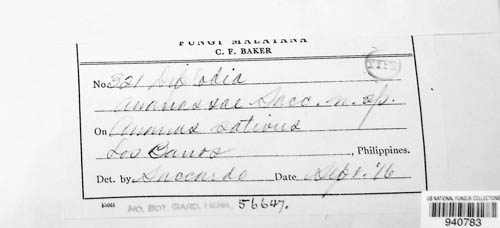 FUNGI MALAYANA
C. F. BAKER
TYPE
No. 321 Diplodia
Ananassae Sacc. n. sp.
On Ananas sativus
Los Banos, Philippines.
Det. by Saccardo Date Sept. '16
MO. BOT. GARD. HERB. 56647.
US NATIONAL FUNGUS COLLECTIONS
940783